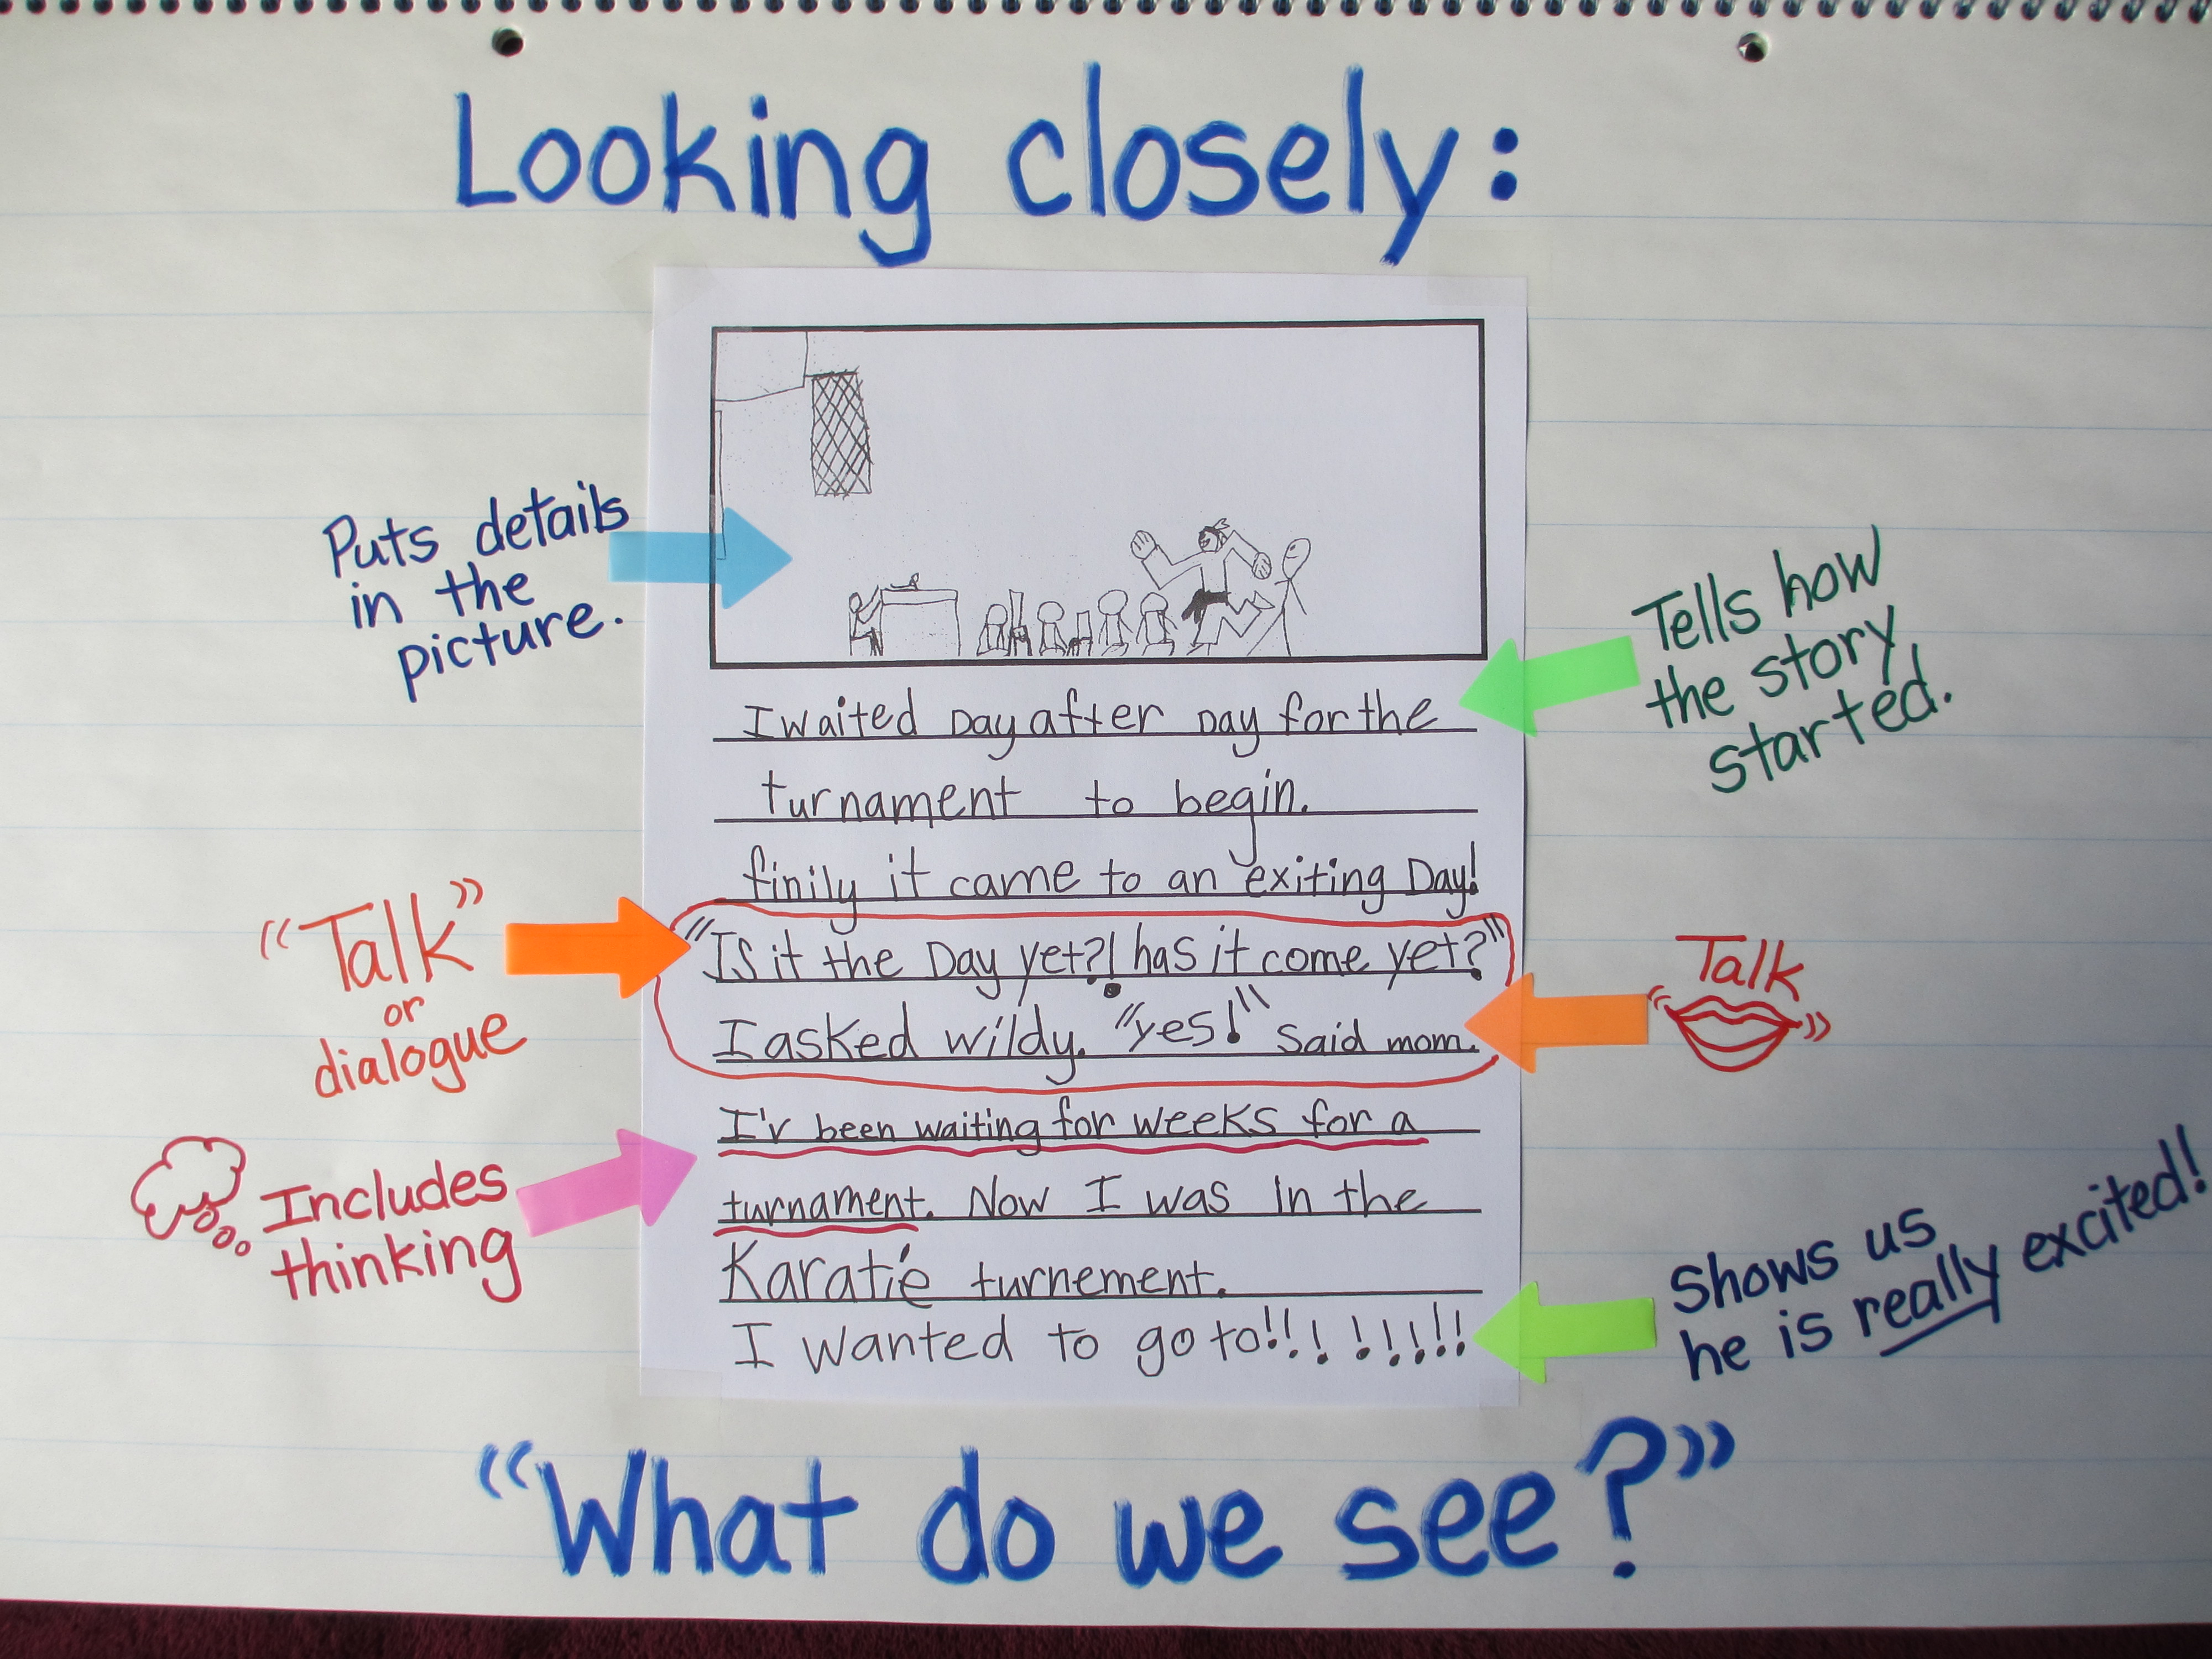 Looking closely:
Puts details
in the
picture.
Tells how
the story
started.
I waited Day after Day for the
turnament to begin.
finily it came to an exiting Day!
"Talk"
or
dialogue
"IS it the Day yet?! has it come yet?"
I asked wildy. "yes!" said mom.
Talk
I'v been waiting for weeks for a
turnament. Now I was in the
Karatie turnement.
I wanted to go to!!!!!!!!!
Includes
thinking
Shows us
he is really excited!
"What do we see?"